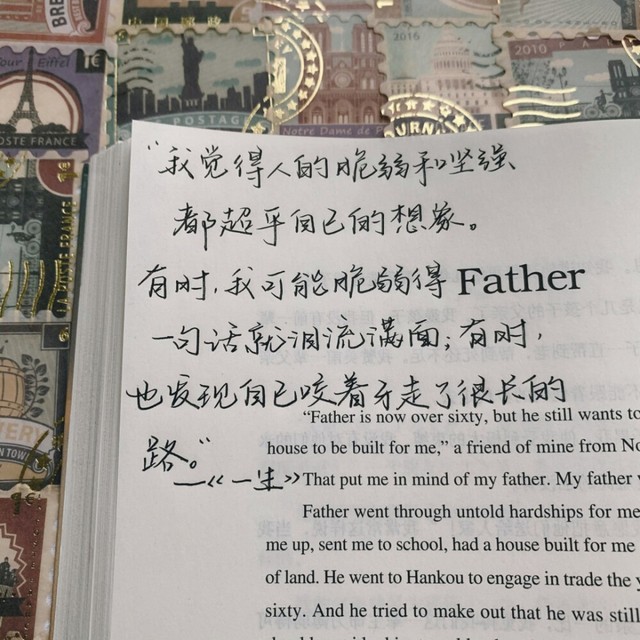 POSTE FRANCE
POSTAGE
Notre Dame de P
2016
2010
LA POSTE FRANCE
“我觉得人的脆弱和坚强
都超乎自己的想象。
有时，我可能脆弱得 Father
一句话就泪流满面；有时，
也发现自己咬着牙走了很长的
“Father is now over sixty, but he still wants to
路。”
house to be built for me,” a friend of mine from No
—《一生》 That put me in mind of my father. My father
Father went through untold hardships for me
me up, sent me to school, had a house built for me
of land. He went to Hankou to engage in trade the y
sixty. And he tried to make out that he was still